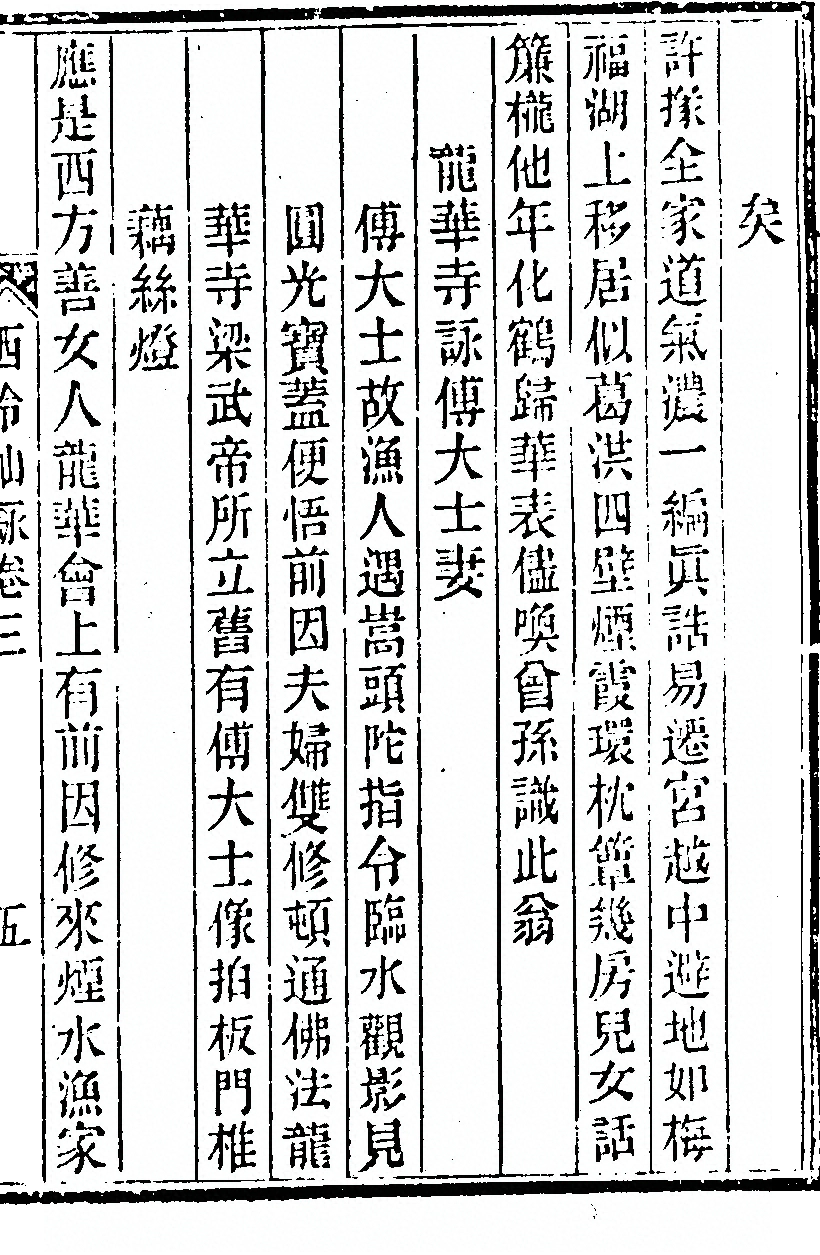 矣
許掾全家道氣濃一編眞誥易遷宮越中避地如梅
福湖上移居似葛洪四壁煙霞環枕簟幾房兒女話
簾櫳他年化鶴歸華表儘喚曾孫識此翁
龍華寺詠傅大士妻
傅大士故漁人遇嵩頭陀指令臨水觀影見
圓光寶蓋便悟前因夫婦雙修頓通佛法龍
華寺梁武帝所立舊有傅大士像拍板門椎
藕絲燈
應是西方善女人龍華會上有前因修來煙水漁家
西泠仙詠卷三
五